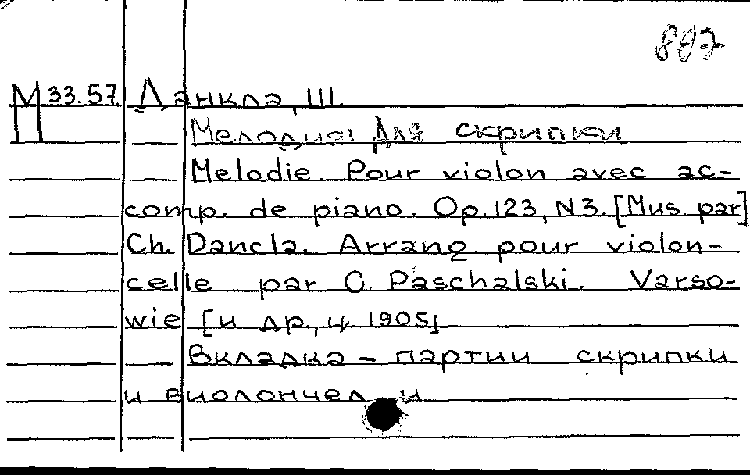 887
М 33.57. Данкла, Ш.
Мелодия: Для скрипки
Melodie. Pour violon avec ac-
comp. de piano. Op.123, N3. [Mus. par]
Ch. Dancla. Arrang pour violon-
celle par C. Paschalski. Varso-
wie [и др., ц. 1905]
Вкладка - партии скрипки
и виолончел и